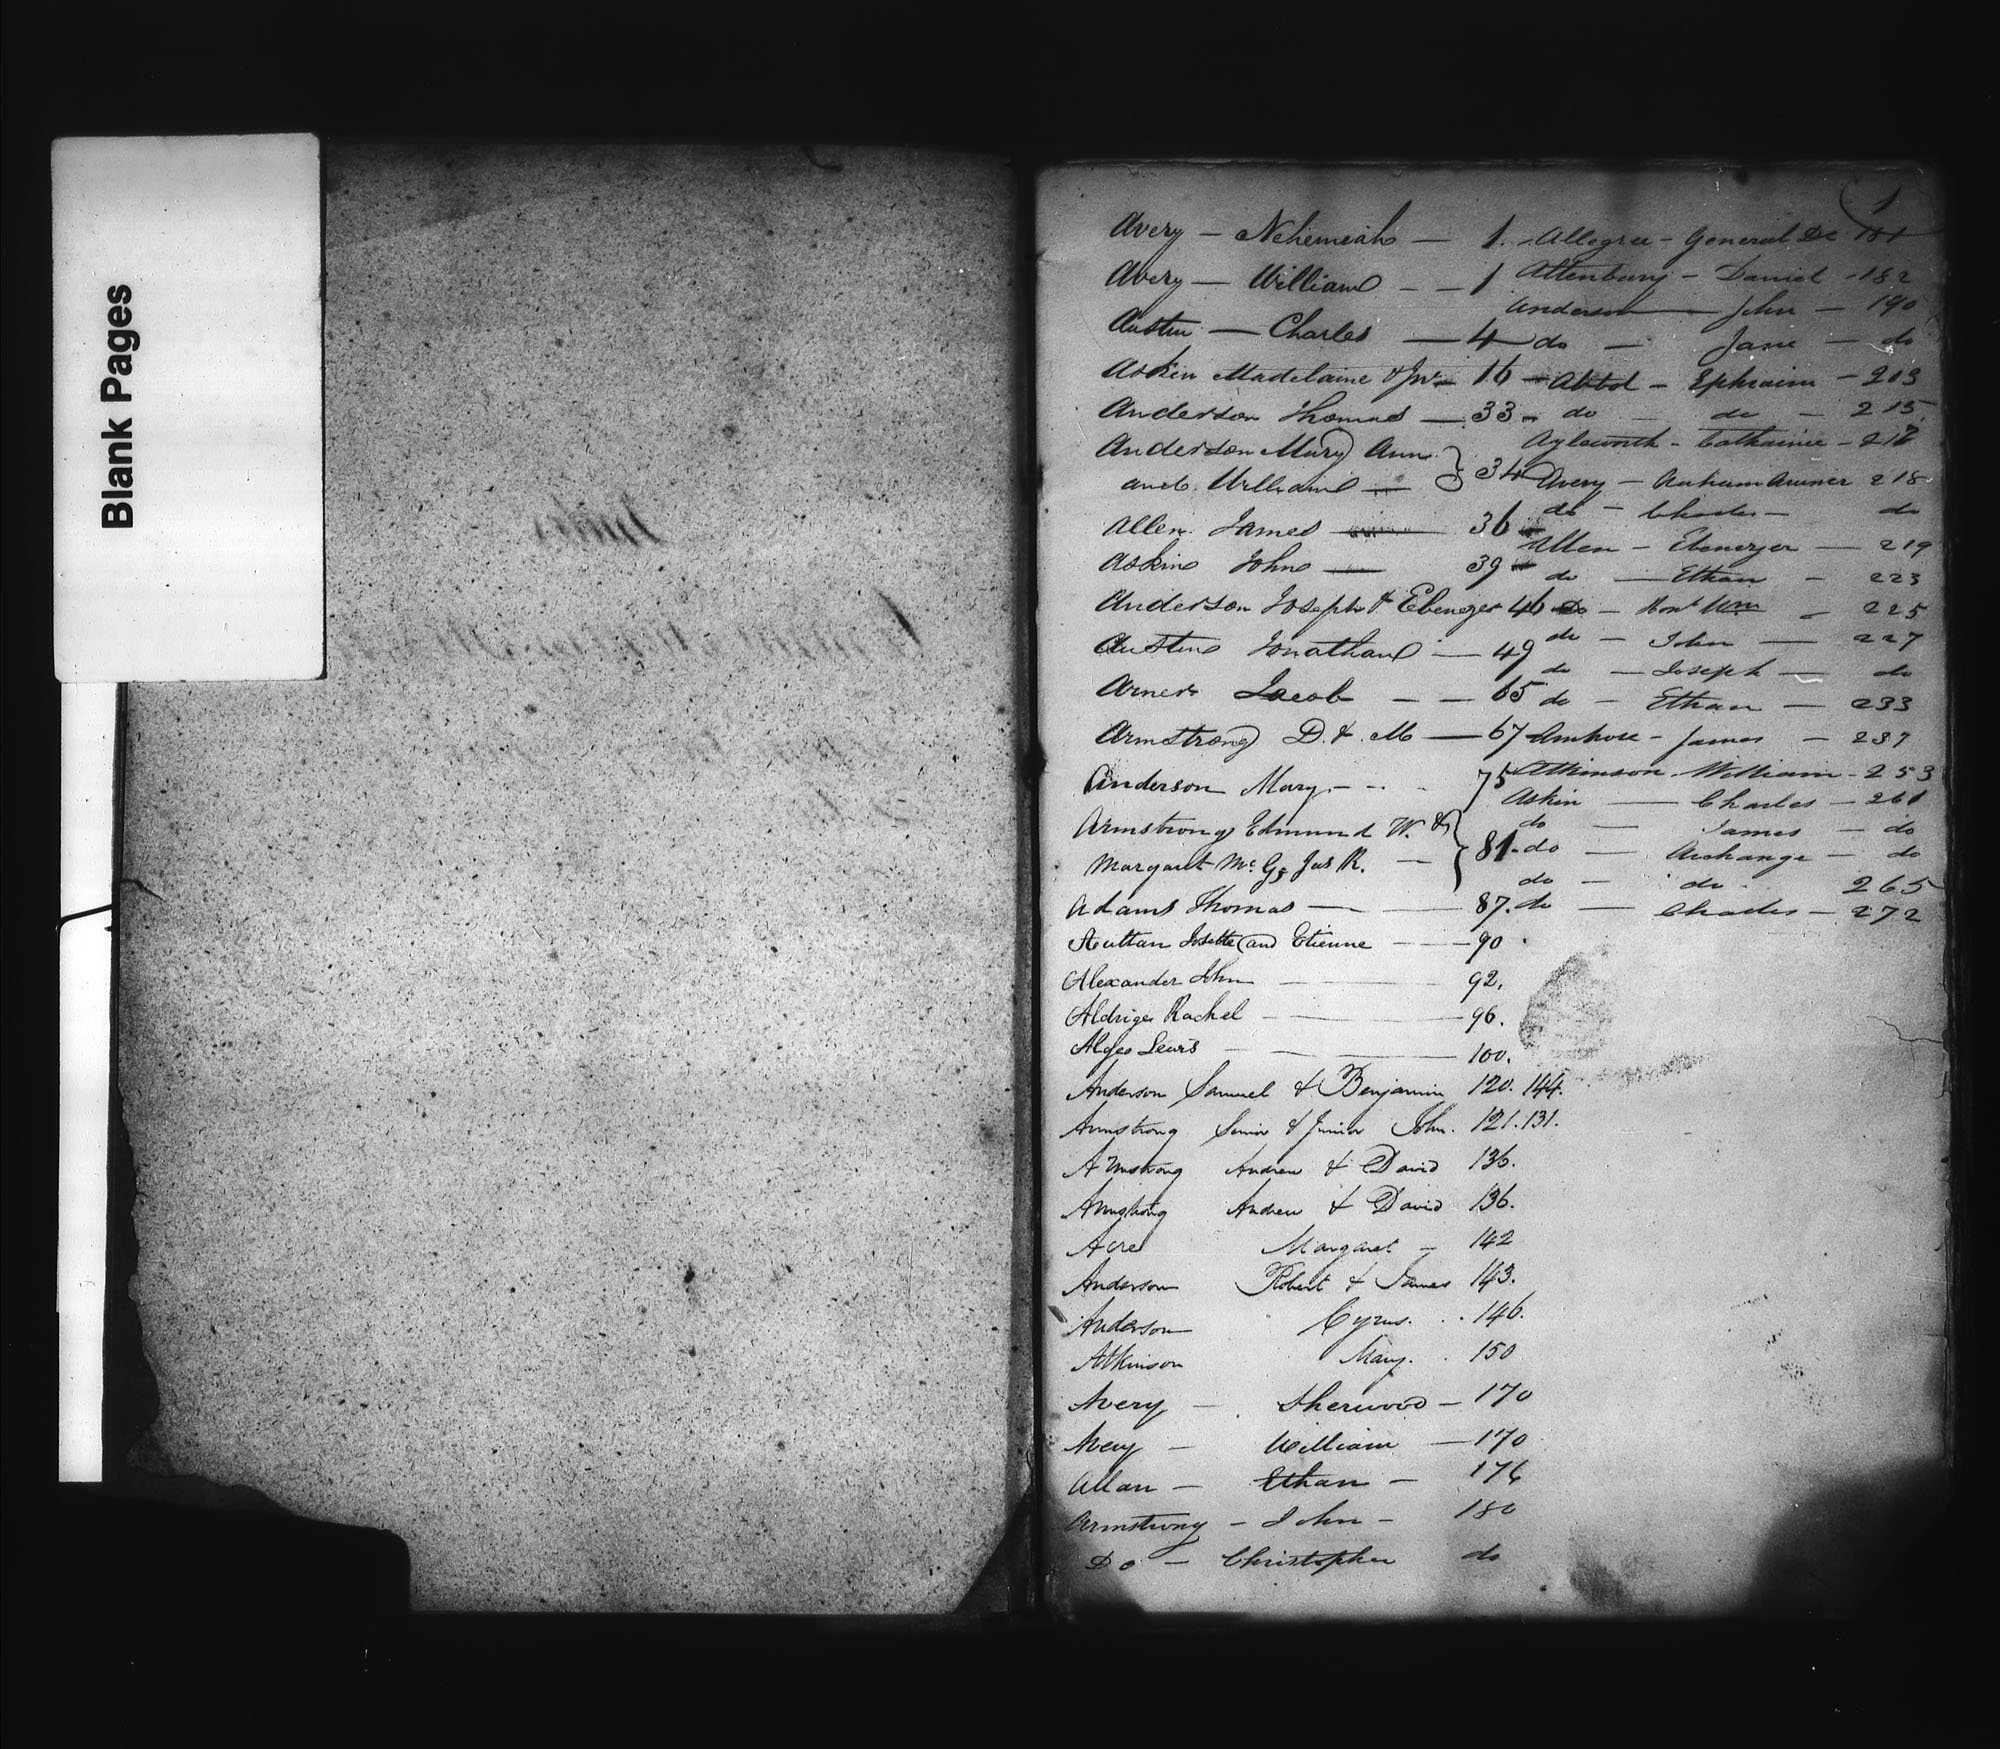 Blank Pages
1
Avery - Nehemiah - 1.
Avery - William - - 1
Austin - Charles - 4
Askin Madelaine & Jno - 16
Anderson Thomas - 33
Anderson Mary Ann
and William - } 34
Allen James - 36
Askin John - 39
Anderson Joseph & Ebenezer 46
Austin Jonathan - 49
Arner Jacob - - 65
Armstrong D. & M - 67
Anderson Mary - - - 75
Armstrong Edmund W. &
Margaret Mc G, Jas R. - } 81
Adams Thomas - - 87.
Josette and Etienne - 90
Alexander John - 92.
Aldrige Rachel - 96.
Lewis - 100.
Anderson Samuel & Benjamin 120. 144.
Armstrong Senior & Junior John. 121. 131.
Armstrong Andrew & David 136.
Armstrong Andrew & David 136.
Acre Margaret - 142
Anderson Robert & James 143.
Anderson Cyrus. . . 146.
Atkinson Mary. . 150
Avery - Sherwood - 170
Avery - William - 170
Allan - Ethan - 176
Armstrong - John - 180
Do - Christopher do
Allegree - General De 181
Attenbury - Daniel - 182
Anderson - John - 190
do - Jane - do
Abbot - Ephraim - 203
do - do - 215
Aylsworth - Catharine - 216
Avery - 218
do - Charles - do
Allen - Ebenezer - 219
do - Ethan - 223
Do - Wm - 225
do - John - 227
do - Joseph - do
do - Ethan - 233
Ambrose - James - 237
Atkinson - William - 253
Askin - Charles - 261
do - James - do
do - Archange - do
do - do - 265
do - Charles - 272